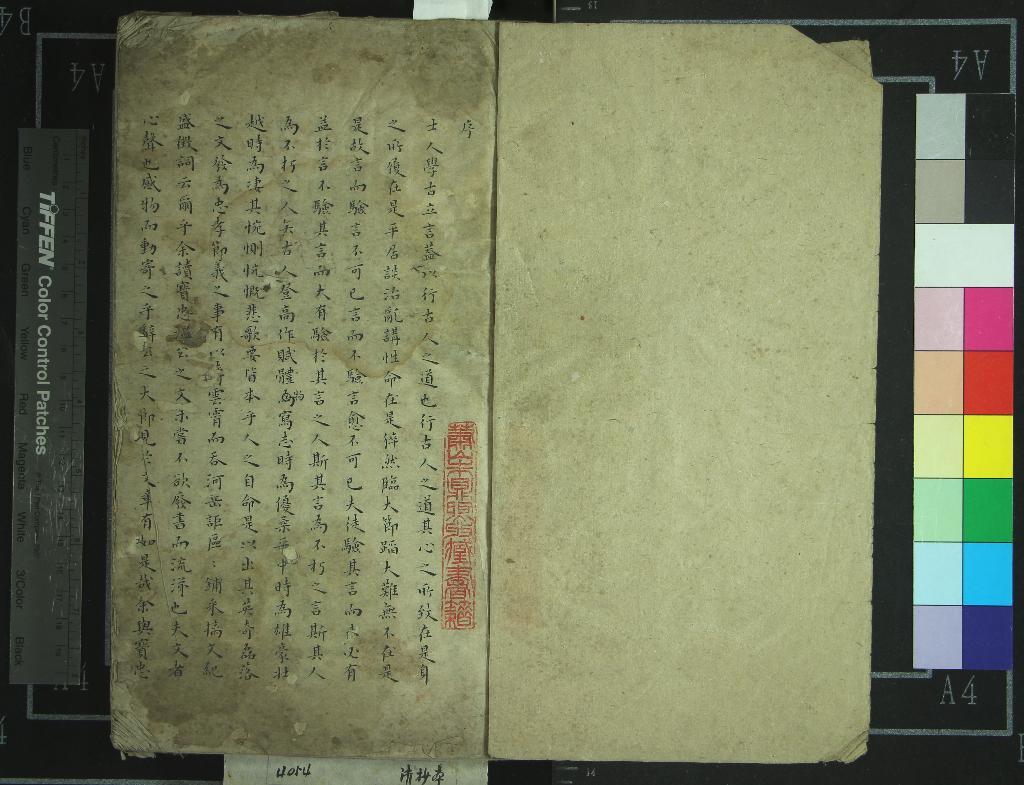 序
士人學古立言葢以行古人之道也行古人之道其心之所致在是身
之所履在是平居談治亂講性命在是猝然臨大節蹈大難無不在是
是故言而驗言不可已言而不驗言愈不可已夫徒驗其言而未必有
益於言不驗其言而大有驗於其言之人斯其言為不朽之言斯其人
為不朽之人矣古人登高作賦體物寫志時為優柔平中時為雄豪壯
越時為凄其惋惻忼慨悲歌要皆本乎人之自命是以出其英奇磊落
之文發為忠孝節義之事有以 雲霄而吞河岳詎區：鋪釆摛文紀
盛徴詞云爾乎余讀寶忠 之文未嘗不欲廢書而流涕也夫文者
心聲也感物而動寄之乎 之大節見於文章有如是哉余與寶忠
4054
清抄本
TIFFEN Color Control Patches
Centimetres
Inches
Blue
Cyan
Green
Yellow
Red
Magenta
White
3/Color
Black
B4
A4
A4
A4